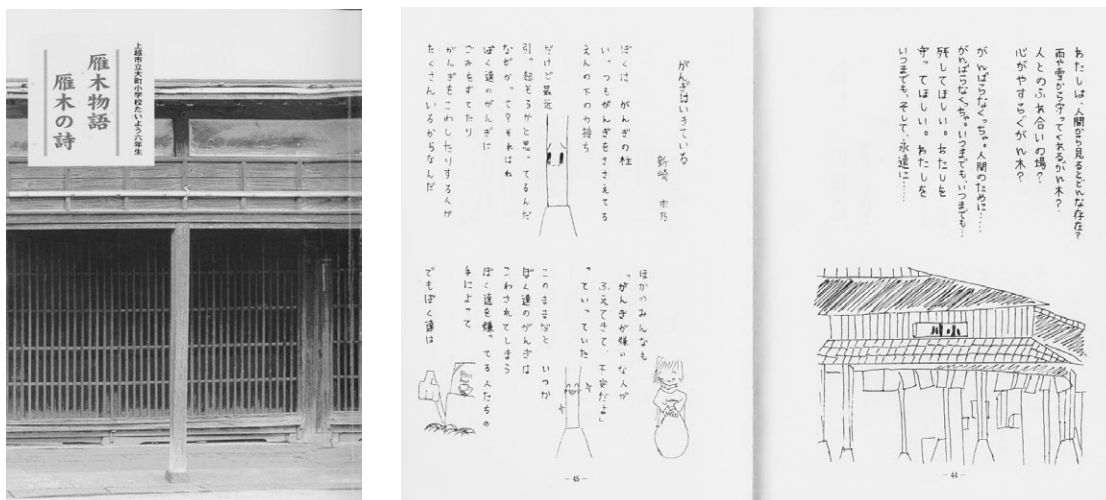 上越市立大町小学校たいよう六年生
雁木物語
雁木の詩
わたしは、人間から見るとどんな存在?
雨や雪から守ってくれるがん木?
人とのふれ合いの場?
心がやすらぐがん木?
がんばらなくっちゃ。人間のために……
がんばらなくっちゃ。いつまでも、いつまでも…
残してほしい。わたしを
守ってほしい。わたしを
いつまでも、そして、永遠に……
小川
- 44 -
がんぎはいきている
新崎
ぼくは がんぎの柱
いっつもがんぎをささえてる
えんの下の力持ち
だけど最近
引っ起そうかと思ってるんだ
なぜかって?それはね
ぼく達のがんぎに
ごみをすてたり
がんぎをこわしたりする人が
たくさんいるからなんだ
ほかのみんなも
「がんぎが嫌いな人が
ふえてきて、不安だよ」
っていっていた
このままだと いつか
ぼく達のがんぎは
こわされてしまう
ぼく達を嫌ってる人たちの
手によって
でもぼく達は
- 45 -